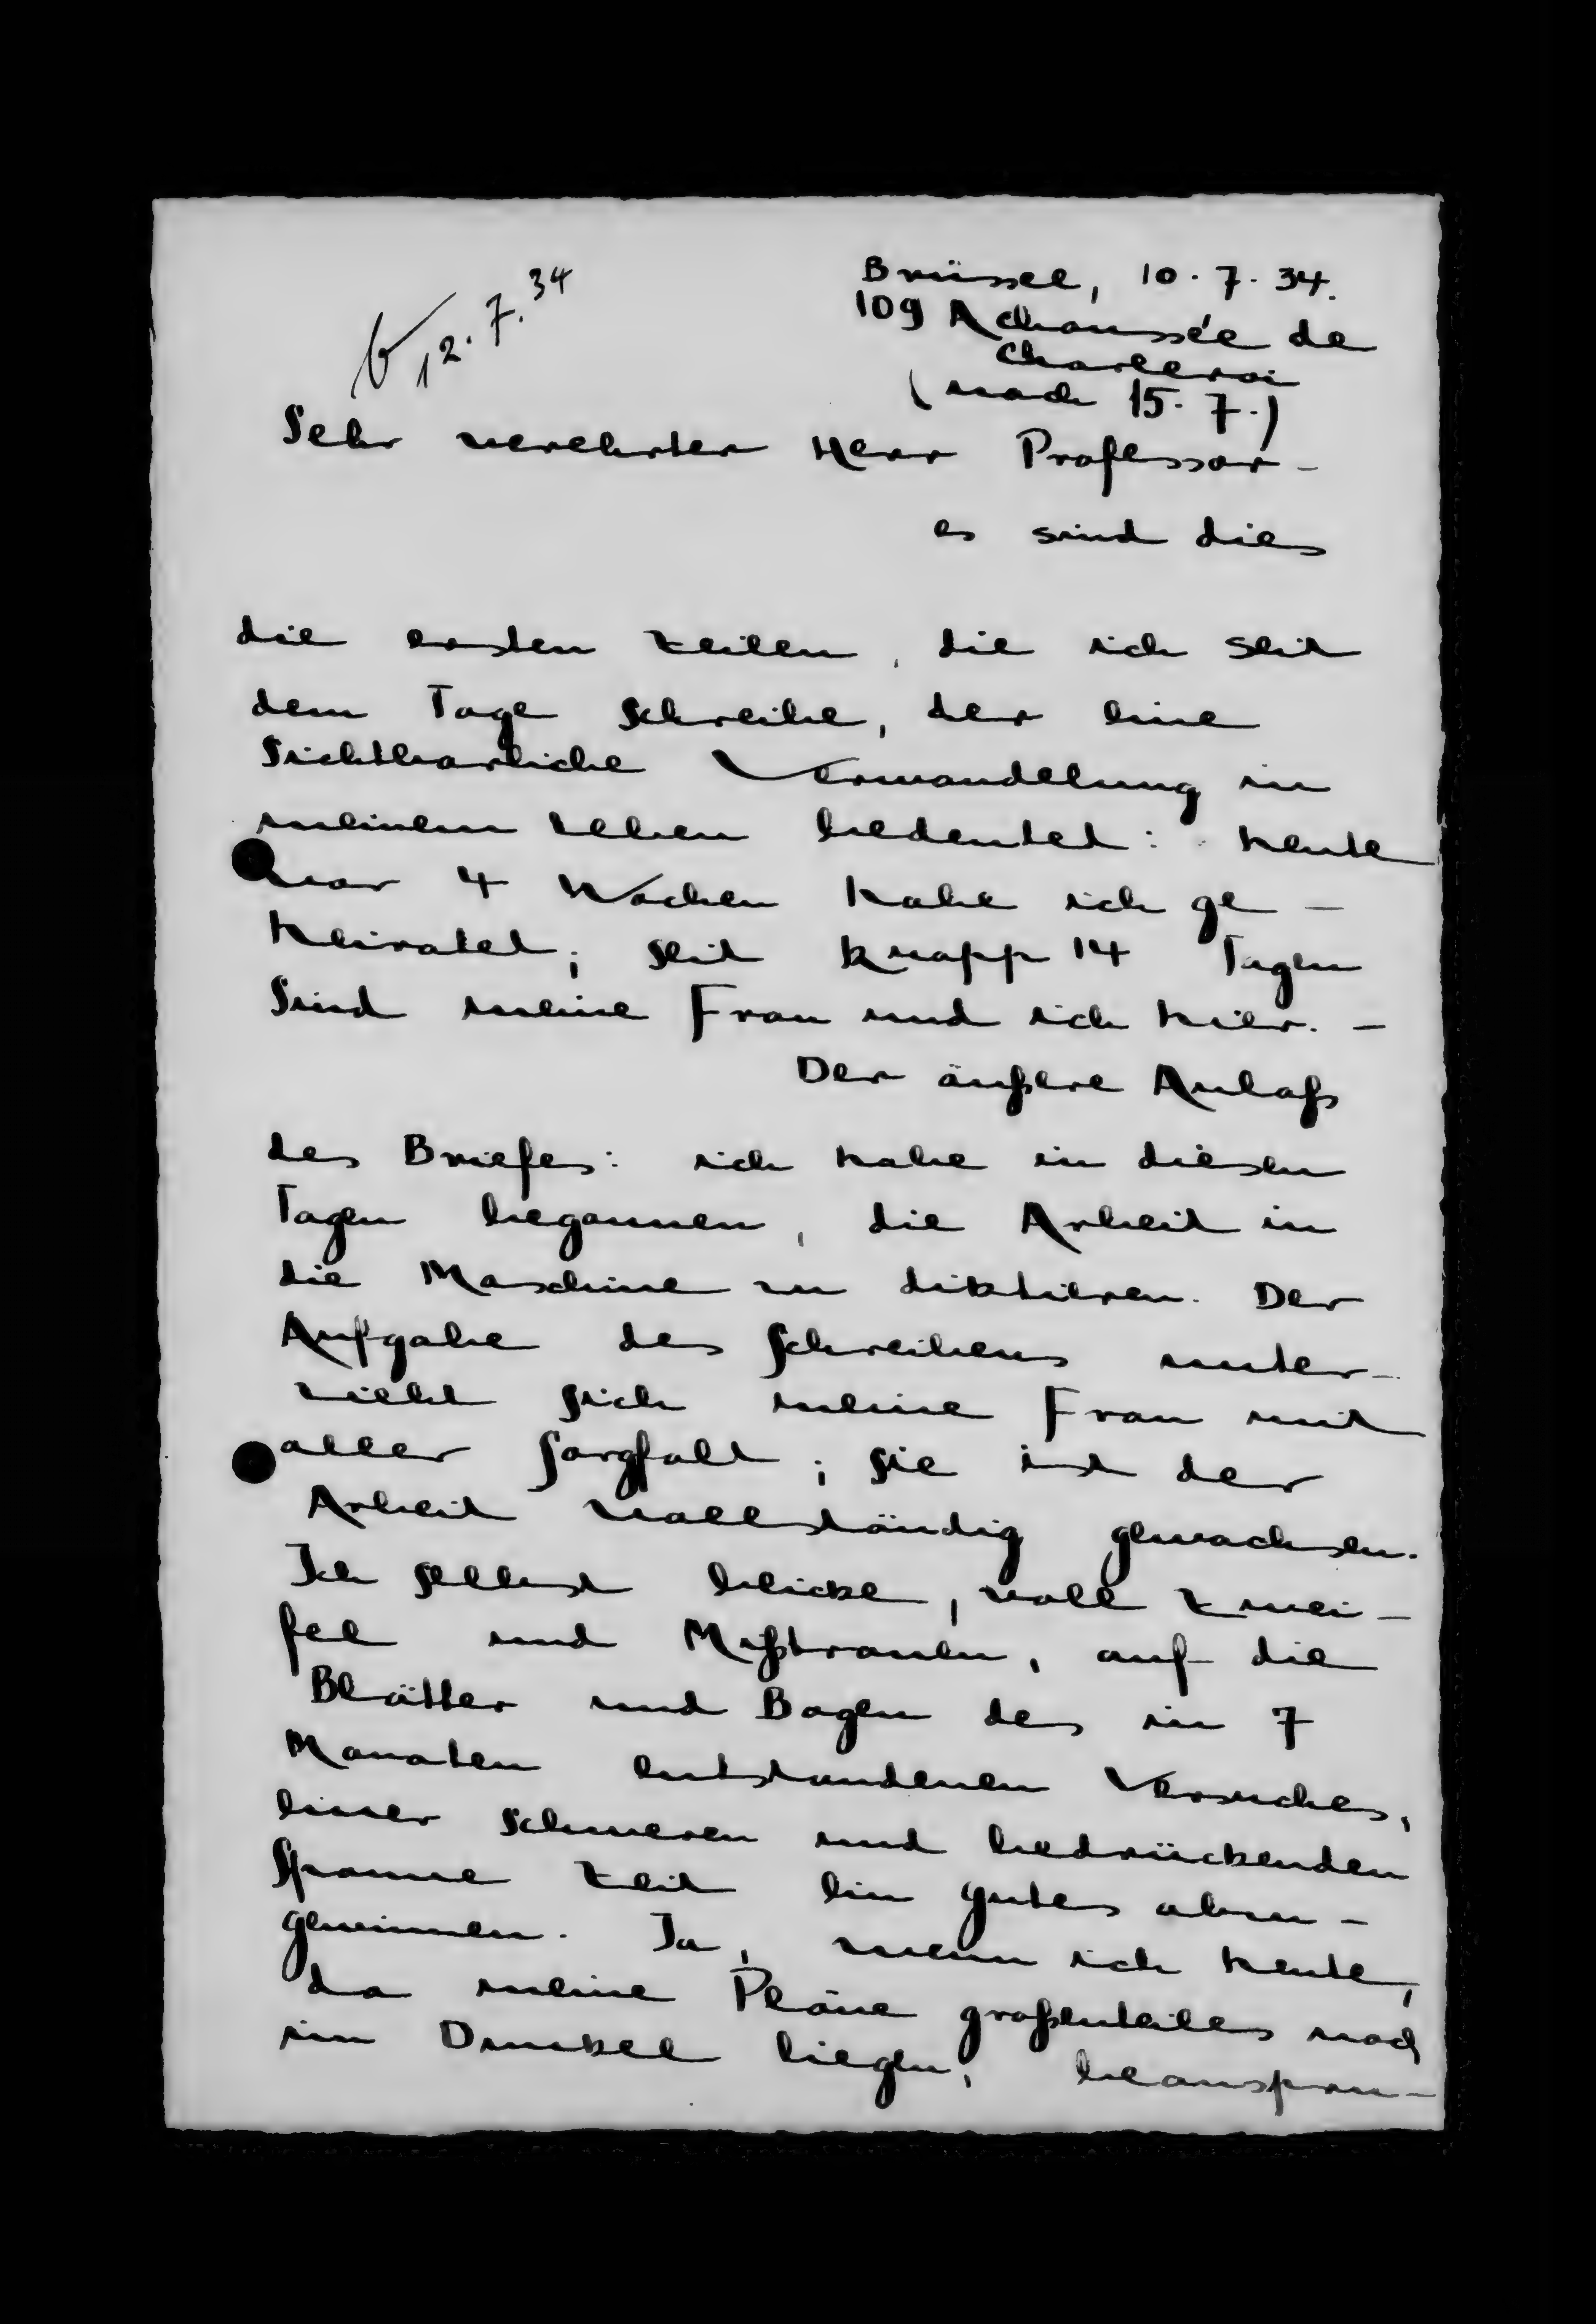 12.7.34
Brüssel, 10.7.34.
109 A chaussée de
Charleroi
(nach 15.7.)
Sehr verehrter Herr Professor -
es sind dies
die ersten Zeilen, die ich seit
dem Tage schreibe, der eine
sichtbarliche Verwandelung in
meinem Leben bedeutet: heute
vor 4 Wochen habe ich ge-
heiratet; seit knapp 14 Tagen
sind meine Frau und ich hier. -
Der äußere Anlaß
des Briefes: ich habe in diesen
Tagen begonnen, die Arbeit in
die Maschine zu diktieren. Der
Aufgabe des Schreibens unter-
zieht sich meine Frau mit
aller Sorgfalt; sie ist der
Arbeit vollständig gewachsen.
Ich selbst blicke, voll Zwei-
fel und Mißtrauen, auf die
Blätter und Bogen des in 7
Monaten entstandenen Versuches,
einer schweren und bedrückenden
Spanne Zeit ein gutes abzu-
gewinnen. Ja, wenn ich heute,
da meine Pläne großenteiles noch
im Dunkel liegen, beanspru-